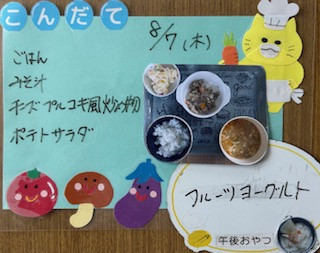 こんだて
8/7(木)
ごはん
みそ汁
キッズプルコギ風炒め物
ポテトサラダ
フルーツヨーグルト
午後おやつ